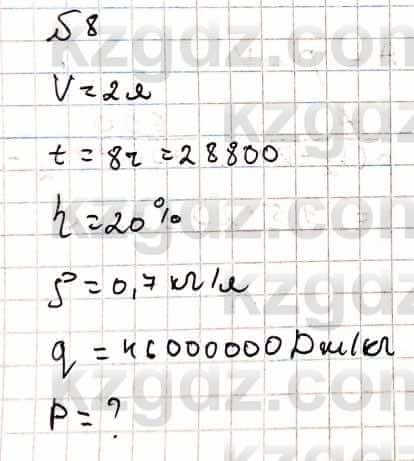 № 8
V = 2 л
t = 8 ч = 28800
η = 20%
ρ = 0,7 кг/л
q = 46000000 Дж/кг
P = ?
kzgdz.com